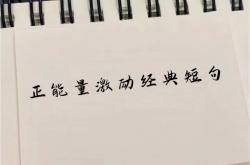 正能量激励经典短句